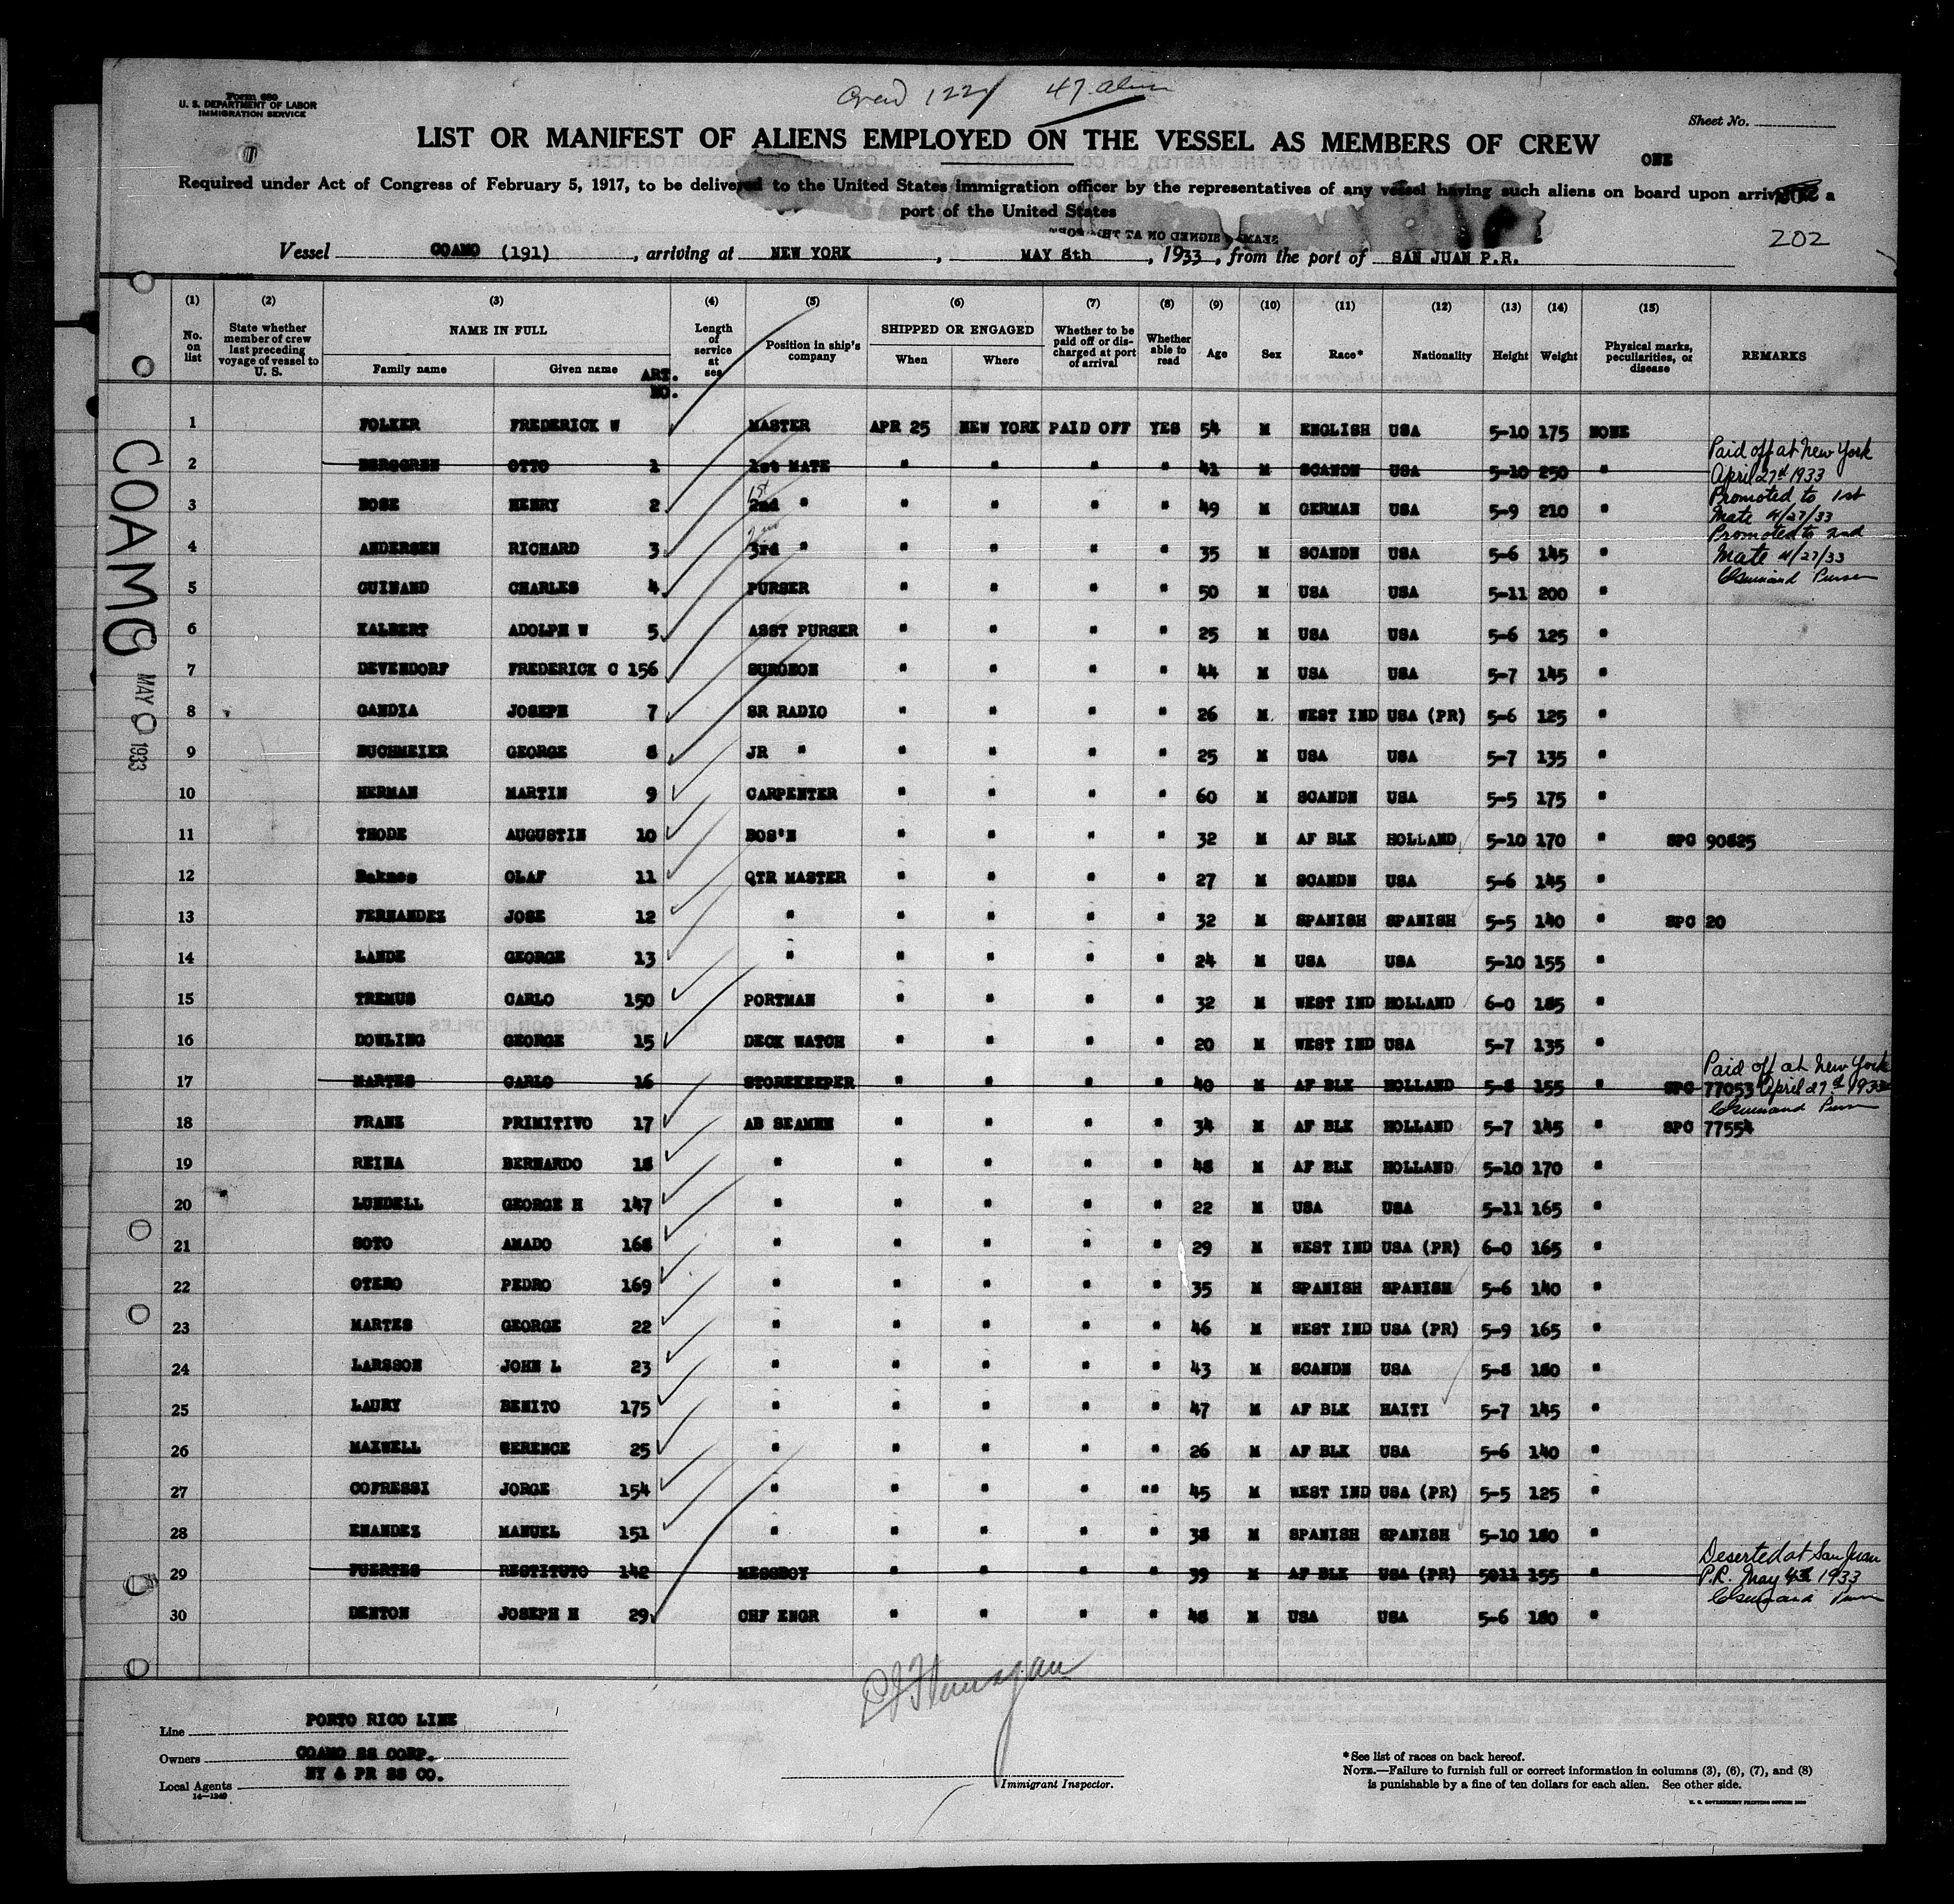 Crew 122 47 alien
Form 680
U. S. DEPARTMENT OF LABOR
IMMIGRATION SERVICE
Sheet No.
LIST OR MANIFEST OF ALIENS EMPLOYED ON THE VESSEL AS MEMBERS OF CREW
ONE
Required under Act of Congress of February 5, 1917, to be delivered to the United States immigration officer by the representatives of any vessel having such aliens on board upon arrival at a
port of the United States
202
Vessel COAMO (191), arriving at NEW YORK, MAY 8th, 1933, from the port of SAN JUAN P.R.
(1) (2) (3) (4) (5) (6) (7) (8) (9) (10) (11) (12) (13) (14) (15)
No. on list State whether member of crew last preceding voyage of vessel to U. S. NAME IN FULL Length of service at sea Position in ship's company SHIPPED OR ENGAGED Whether to be paid off or discharged at port of arrival Whether able to read Age Sex Race* Nationality Height Weight Physical marks, peculiarities, or disease REMARKS
Family name Given name ART. NO. When Where
COAMO MAY 1933
1 FOLKER FREDERICK W MASTER APR 25 NEW YORK PAID OFF YES 54 M ENGLISH USA 5-10 175 NONE
2 BERGGREN OTTO 1 1st MATE " " " " 41 M SCANDN USA 5-10 250 " Paid off at New York April 27th 1933
3 BOSE HENRY 2 2nd 1st " " " " " 49 M GERMAN USA 5-9 210 " Promoted to 1st Mate 4/27/33
4 ANDERSEN RICHARD 3 3rd 2nd " " " " " 35 M SCANDN USA 5-6 145 " Promoted to 2nd Mate 4/27/33
5 GUINAND CHARLES 4 PURSER " " " " 50 M USA USA 5-11 200 " CGuinand Purser
6 KALBERT ADOLPH W 5 ASST PURSER " " " " 25 M USA USA 5-6 125 "
7 DEVENDORF FREDERICK C 156 SURGEON " " " " 44 M USA USA 5-7 145 "
8 GANDIA JOSEPH 7 SR RADIO " " " " 26 M. WEST IND USA (PR) 5-6 125 "
9 BUCHMEIER GEORGE 8 JR " " " " " 25 M USA USA 5-7 135 "
10 HERMAN MARTIN 9 CARPENTER " " " " 60 M SCANDN USA 5-5 175 "
11 THODE AUGUSTIN 10 BOS'N " " " " 32 M AF BLK HOLLAND 5-10 170 " SPC 90825
12 Baknes OLAF 11 QTR MASTER " " " " 27 M SCANDN USA 5-6 145 "
13 FERNANDEZ JOSE 12 " " " " " 32 M SPANISH SPANISH 5-5 140 " SPC 20
14 LANDE GEORGE 13 " " " " " 24 M USA USA 5-10 155 "
15 TREMUS CARLO 150 PORTMAN " " " " 32 M WEST IND HOLLAND 6-0 185 "
16 DOWLING GEORGE 15 DECK WATCH " " " " 20 M WEST IND USA 5-7 135 "
17 MARTES CARLO 16 STOREKEEPER " " " " 40 M AF BLK HOLLAND 5-8 155 " SPC 77053 Paid off at New York April 27th 1933 CGuinand Purser
18 FRANZ PRIMITIVO 17 AB SEAMEN " " " " 34 M AF BLK HOLLAND 5-7 145 " SPC 77554
19 REINA BERNARDO 18 " " " " " 48 M AF BLK HOLLAND 5-10 170 "
20 LUNDELL GEORGE H 147 " " " " " 22 M USA USA 5-11 165 "
21 SOTO AMADO 168 " " " " " 29 M WEST IND USA (PR) 6-0 165 "
22 OTERO PEDRO 169 " " " " " 35 M SPANISH SPANISH 5-6 140 "
23 MARTES GEORGE 22 " " " " " 46 M WEST IND USA (PR) 5-9 165 "
24 LARSSON JOHN L 23 " " " " " 43 M SCANDN USA 5-8 180 "
25 LAURY BENITO 175 " " " " " 47 M AF BLK HAITI 5-7 145 "
26 MAXWELL GERENCE 25 " " " " " 26 M AF BLK USA 5-6 140 "
27 COFRESSI JORGE 154 " " " " "" 45 M WEST IND USA (PR) 5-5 125 "
28 ENANDEZ MANUEL 151 " " " " " 38 M SPANISH SPANISH 5-10 180 "
29 FUERTES RESTITUTO 142 MESSBOY " " " " 39 M AF BLK USA (PR) 5011 155 " Deserted at San Juan P.R. May 4th 1933 CGuinand Purser
30 DENTON JOSEPH H 29 CHF ENGR " " " " 48 M USA USA 5-6 180 "
Line PORTO RICO LINE
Owners COAMO SS CORP.
Local Agents NY & PR SS CO.
14—1240
Immigrant Inspector.
*See list of races on back hereof.
NOTE.—Failure to furnish full or correct information in columns (3), (6), (7), and (8)
is punishable by a fine of ten dollars for each alien. See other side.